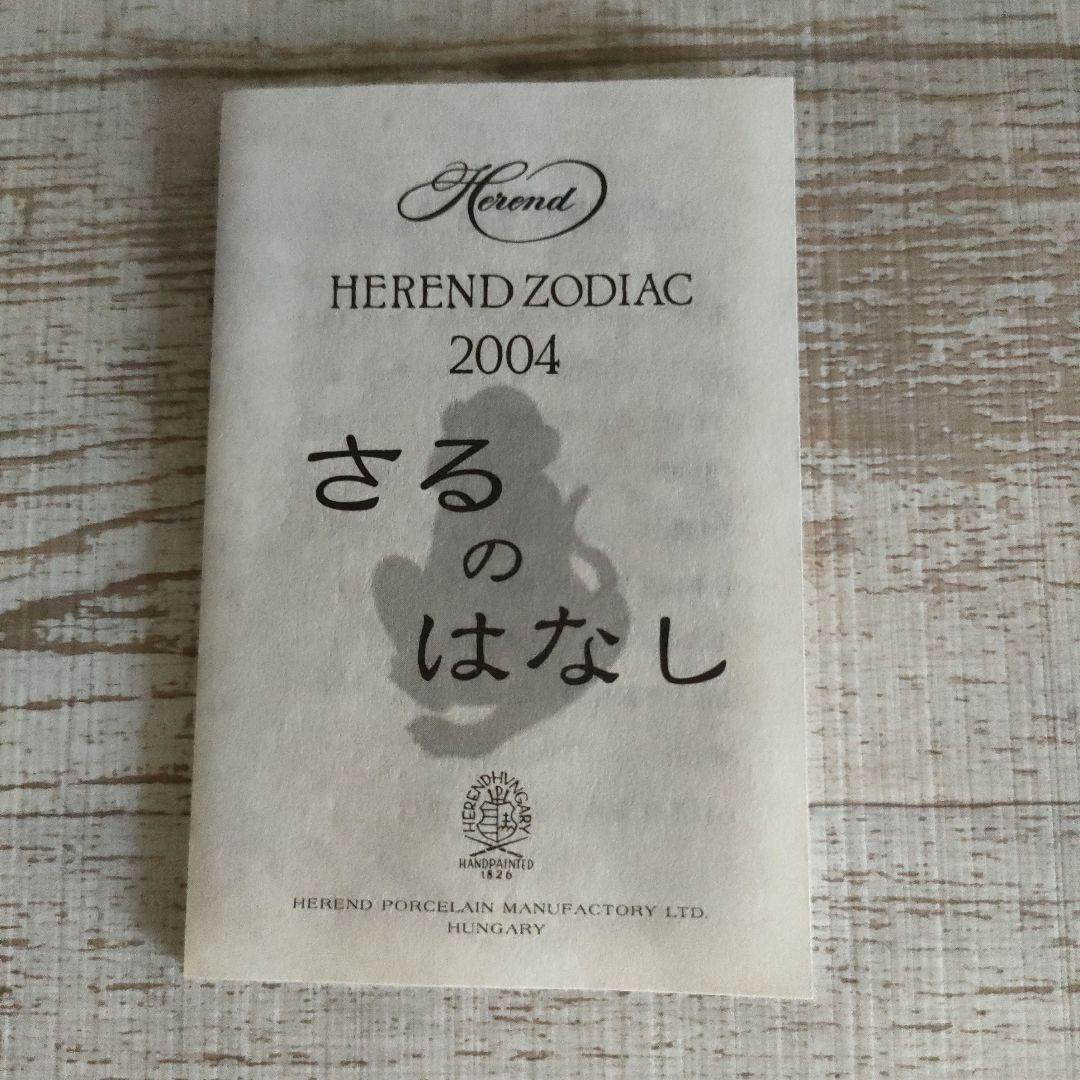 Herend
HEREND ZODIAC
2004
さる
の
はなし
HERENDHVNGARY
HANDPAINTED
1826
HEREND PORCELAIN MANUFACTORY LTD.
HUNGARY